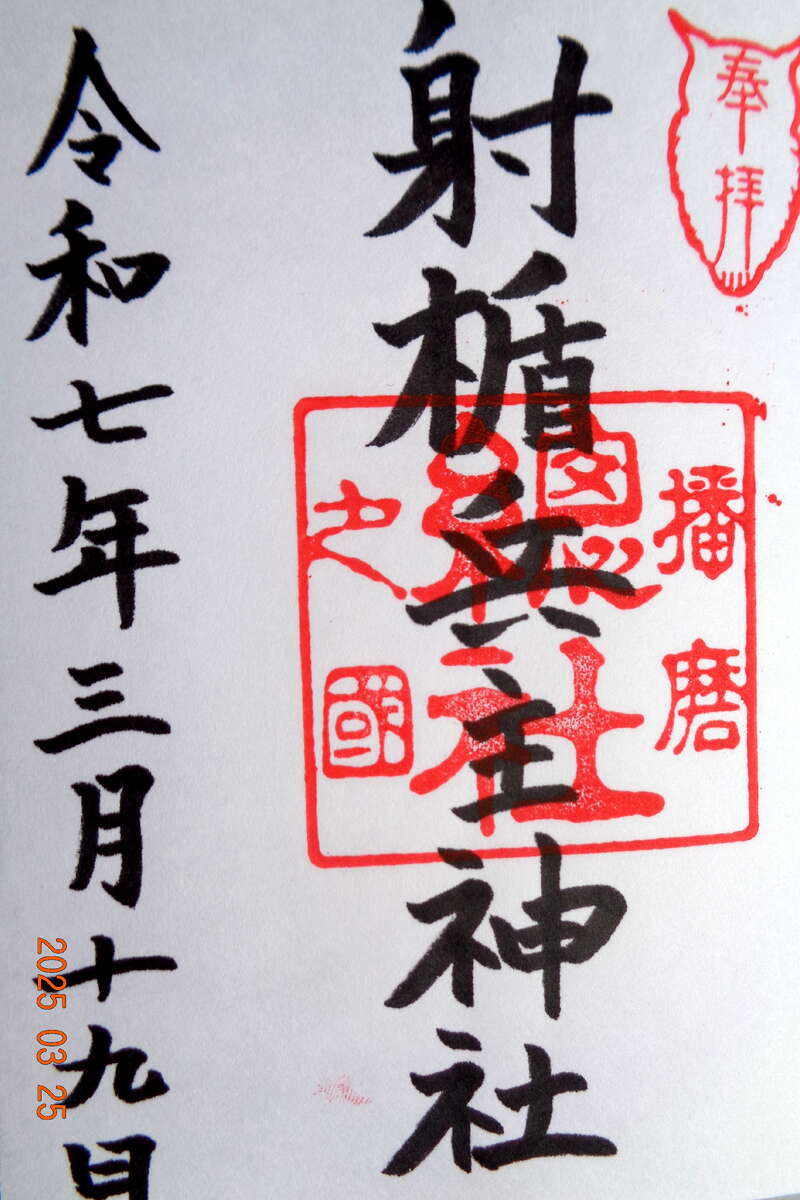 奉拝
射楯兵主神社
播磨
總社
之國
令和七年三月十九日
2025 03 25